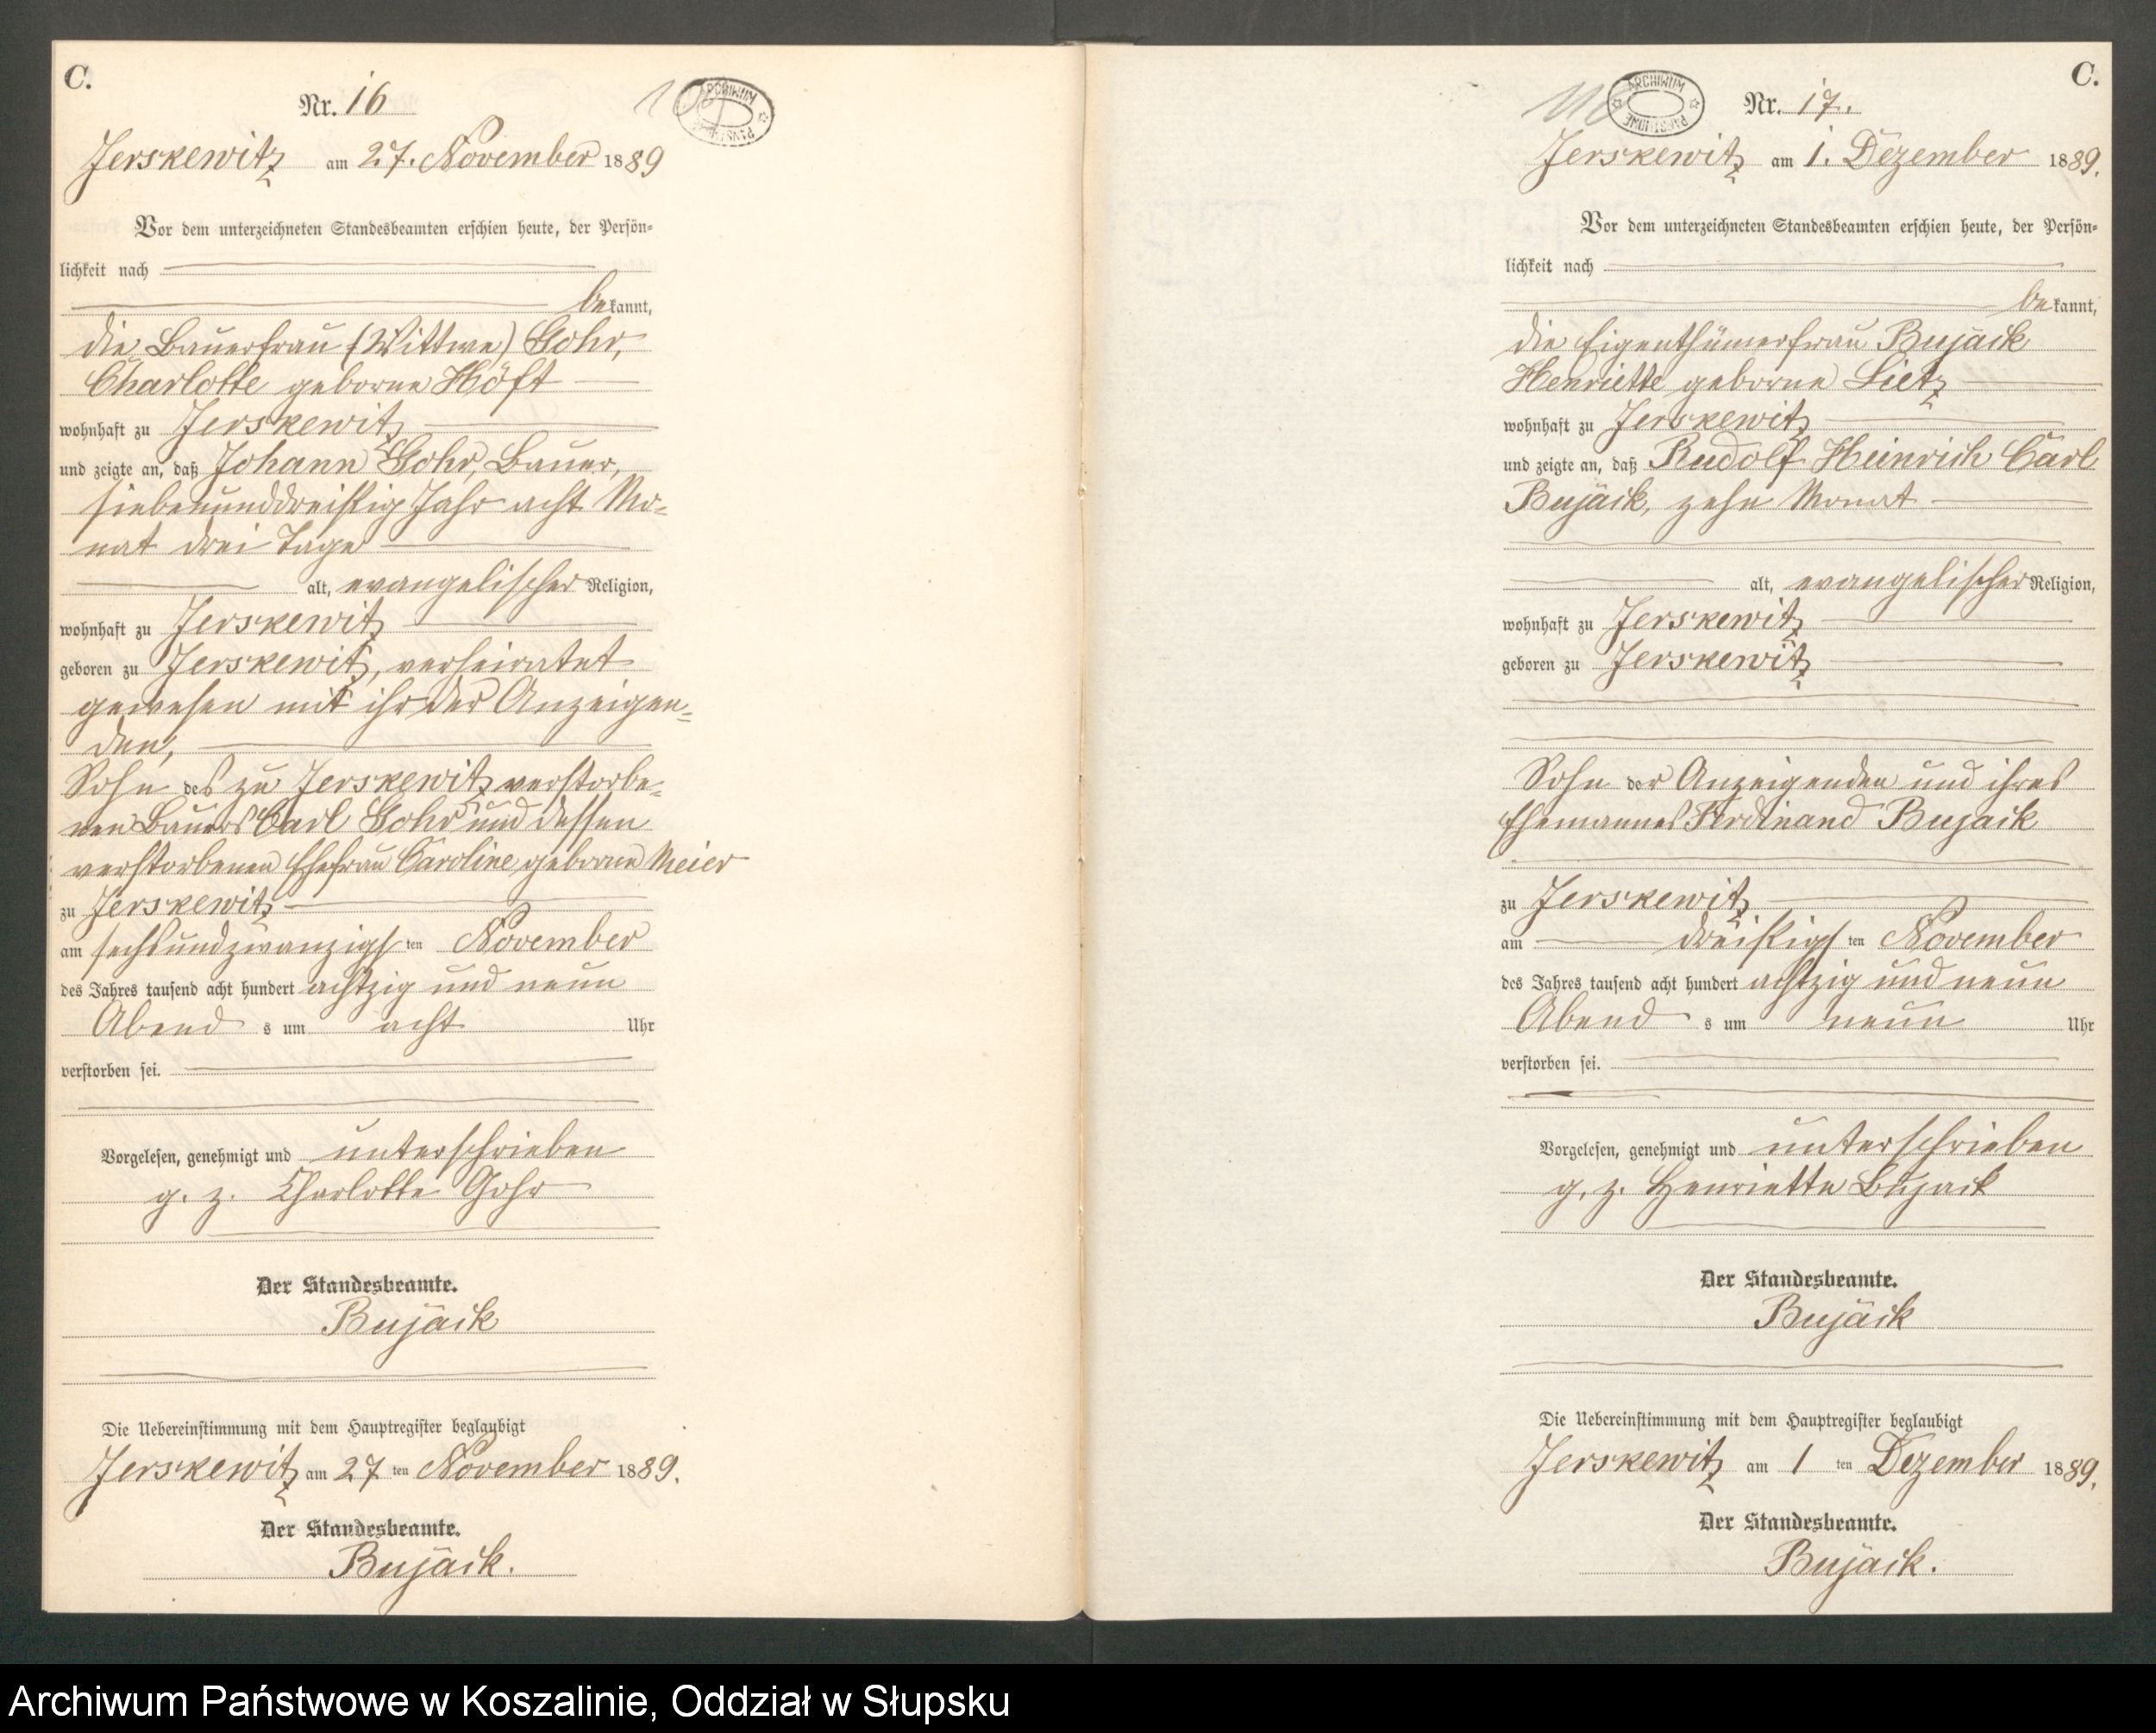 C.
Nr. 16
Jerskewitz am 27. November 1889
Vor dem unterzeichneten Standesbeamten erschien heute, der Persön-
lichkeit nach
bekannt,
die Bauerfrau (Wittwe) Gohr,
Charlotte geborne Höft
wohnhaft zu Jerskewitz
und zeigte an, daß Johann Gohr, Bauer,
siebenunddreißig Jahr acht Mo-
nat drei Tage
alt, evangelischer Religion,
wohnhaft zu Jerskewitz
geboren zu Jerskewitz, verheiratet
gewesen mit ihr der Anzeigen-
den,
Sohn des zu Jerskewitz verstorbe-
nen Bauers Carl Gohr und dessen
verstorbenen Ehefrau Caroline geborne Meier
zu Jerskewitz
am sechsundzwanzigsten November
des Jahres tausend acht hundert achtzig und neun
Abends um acht Uhr
verstorben sei.
Vorgelesen, genehmigt und unterschrieben
g. z. Charlotte Gohr
Der Standesbeamte.
Bujack
Die Uebereinstimmung mit dem Hauptregister beglaubigt
Jerskewitz am 27 ten November 1889.
Der Standesbeamte.
Bujack.
ARCHIWUM PAŃSTWOWE
C.
Nr. 17.
ARCHIWUM PAŃSTWOWE
Jerskewitz am 1. Dezember 1889.
Vor dem unterzeichneten Standesbeamten erschien heute, der Persön-
lichkeit nach
bekannt,
die Eigenthümerfrau Bujack
Henriette geborne Lietz
wohnhaft zu Jerskewitz
und zeigte an, daß Rudolf Heinrich Carl
Bujack, zehn Monat
alt, evangelischer Religion,
wohnhaft zu Jerskewitz
geboren zu Jerskewitz
Sohn der Anzeigenden und ihres
Ehemannes Ferdinand Bujack
zu Jerskewitz
am dreißigsten November
des Jahres tausend acht hundert achtzig und neun
Abends um neun Uhr
verstorben sei.
Vorgelesen, genehmigt und unterschrieben
g. z. Henriette Bujack
Der Standesbeamte.
Bujack
Die Uebereinstimmung mit dem Hauptregister beglaubigt
Jerskewitz am 1 ten Dezember 1889.
Der Standesbeamte.
Bujack.
Archiwum Państwowe w Koszalinie, Oddział w Słupsku